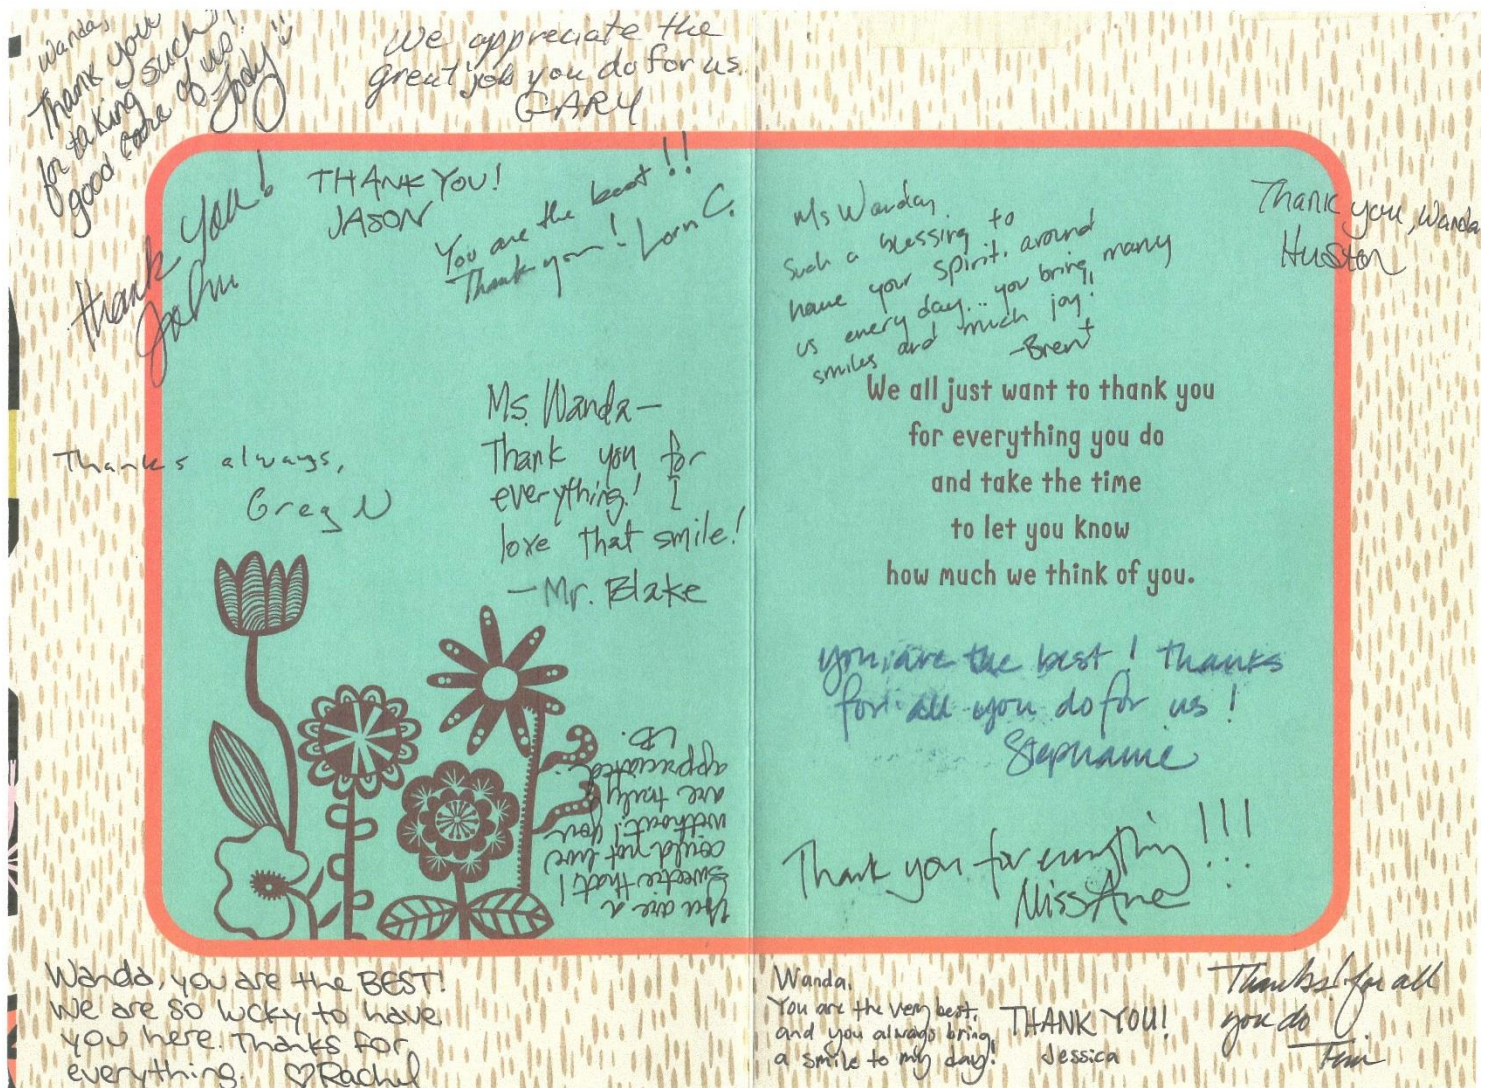 Wanda,
Thank you
for taking such
good care of us!
Jody
We appreciate the
great job you do for us.
GARY
thank you!
John
THANK YOU!
JASON
You are the best!!
Thank you! - Lorn C.
Thanks always,
Greg N
Ms. Wanda—
Thank you for
everything! I
love that smile!
—Mr. Blake
You are a
sweetie that I
could not live
without! You
are truly
appreciated.
LB.
Wanda, you are the BEST!
We are so lucky to have
you here. Thanks for
everything. ♡Rachel
Ms Wanda,
Such a blessing to
have your spirit around
us every day... you bring many
smiles and much joy!
-Brent
Thank you, Wanda
Huston
We all just want to thank you
for everything you do
and take the time
to let you know
how much we think of you.
you are the best! thanks
for all you do for us!
Stephanie
Thank you for everything!!!
Miss Ane
Wanda,
You are the very best,
and you always bring
a smile to my day!
THANK YOU!
Jessica
Thanks! for all
you do